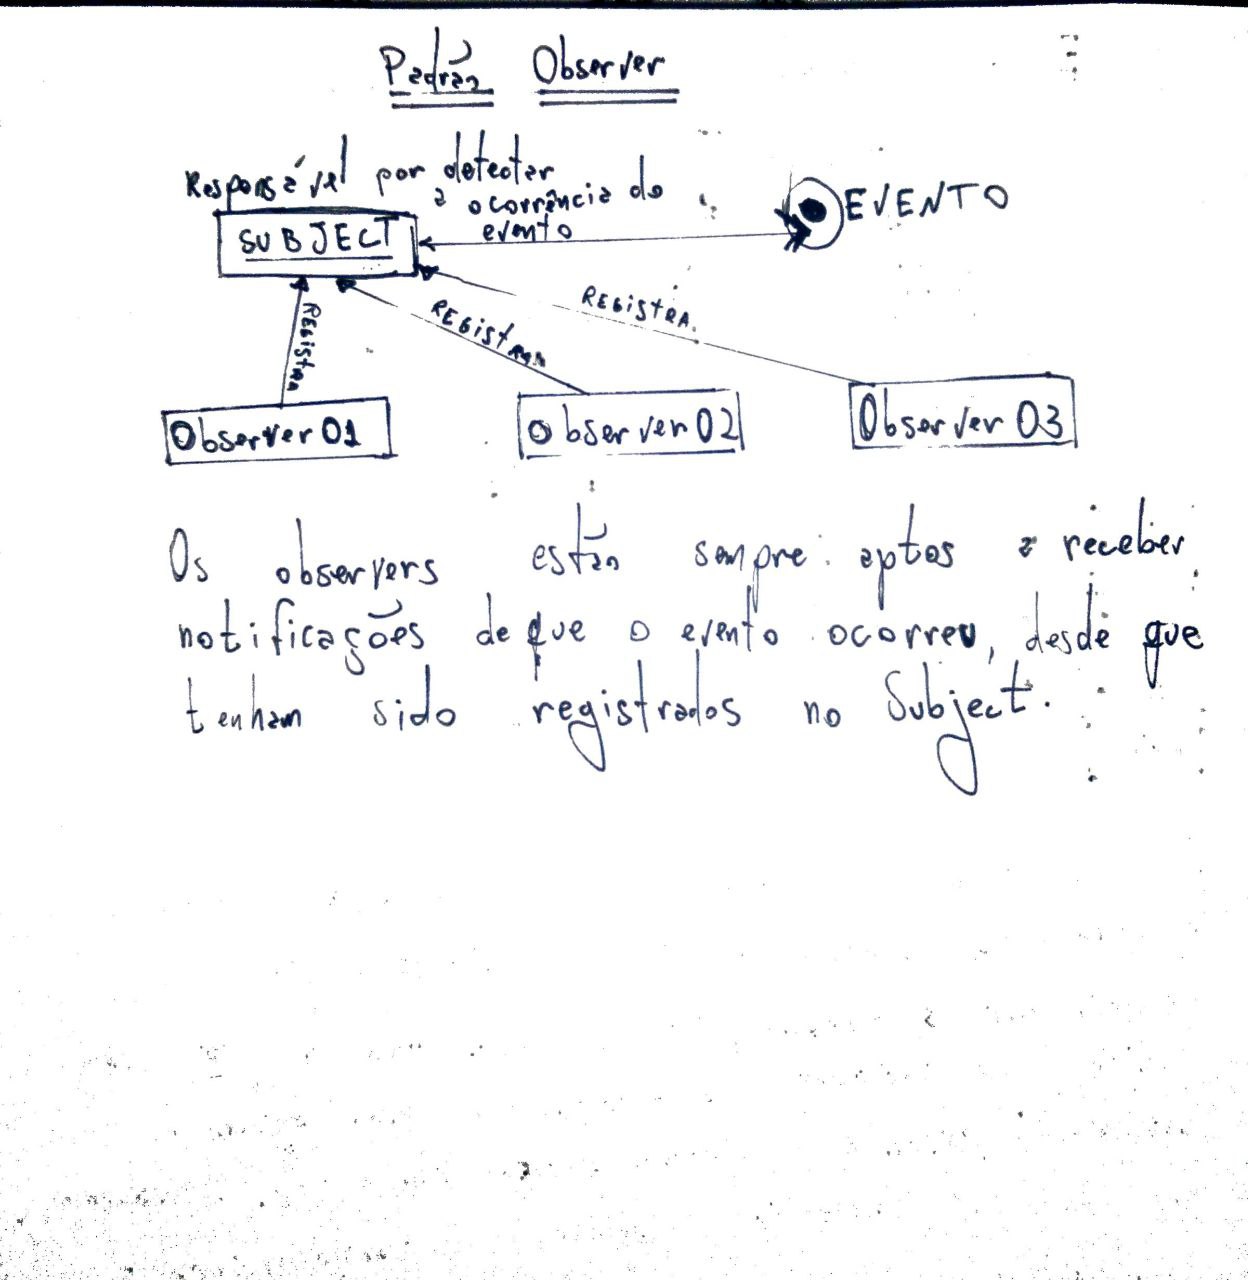 Padrão Observer
Responsável por detectar
a ocorrência do
evento
EVENTO
SUBJECT
REGISTRA
REGISTRA
REGISTRA
Observer 01
Observer 02
Observer 03
Os observers estão sempre aptos a receber
notificações de que o evento ocorreu, desde que
tenham sido registrados no Subject.